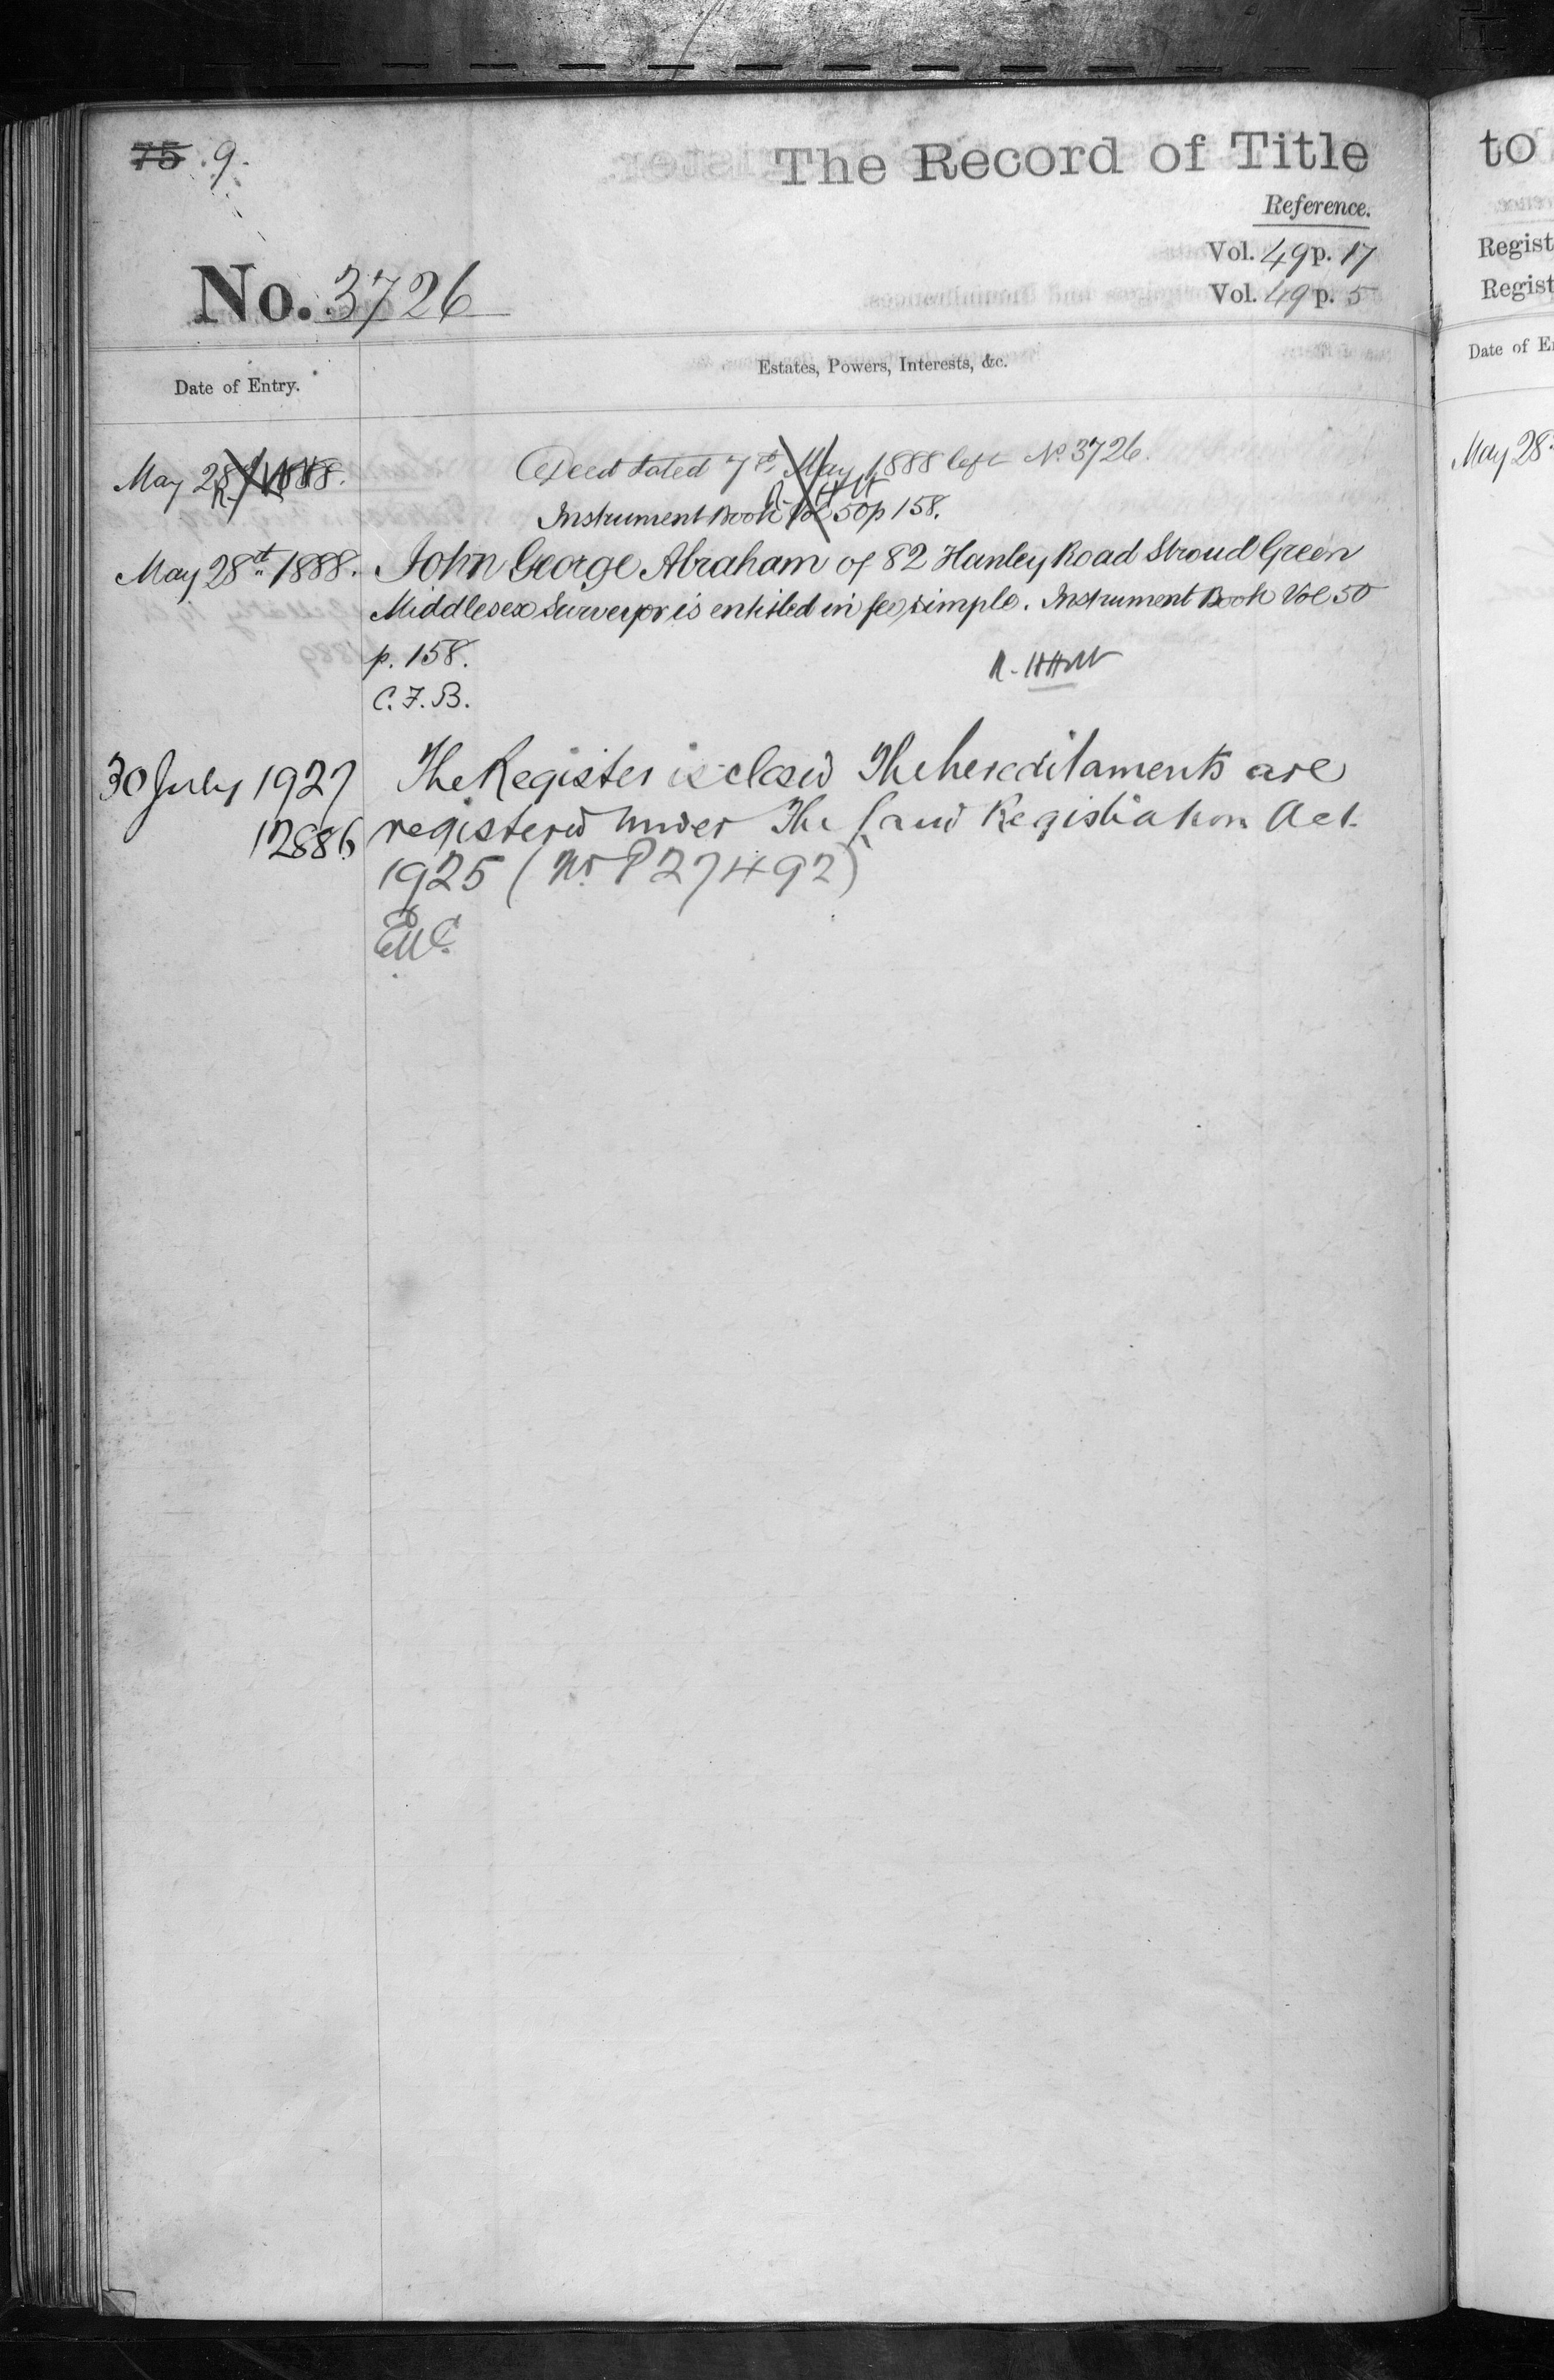 75 . 9.
The Record of Title
Reference.
Vol. 49 p. 17
No. 3726
Vol. 49 p. 5
Date of Entry.
Estates, Powers, Interests, &c.
May 28th 1888. Deed dated 7th May 1888 left No. 3726.
Instrument Book Vol 50 p 158.
May 28th 1888. John George Abraham of 82 Hanley Road Stroud Green
Middlesex Surveyor is entitled in fee simple. Instrument Book Vol 50
p. 158.
C. F. B.
30 July 1927 The Register is closed The hereditaments are
12886 registered under The Land Registration Act
1925 (No. P27492)
to
Regist
Regist
Date of E
May 28